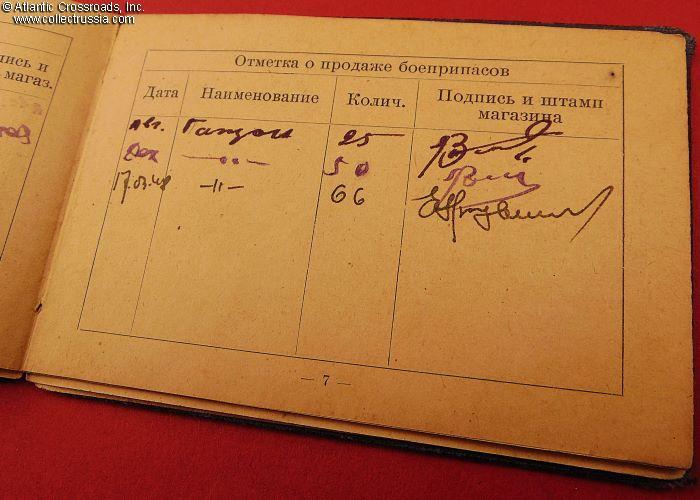 © Atlantic Crossroads, Inc.
www.collectrussia.com
пись и
магаз.
Отметка о продаже боеприпасов
Дата Наименование Колич. Подпись и штамп магазина
авг. 25
Дек —"— 50
17.03.48 —"— 66
— 7 —